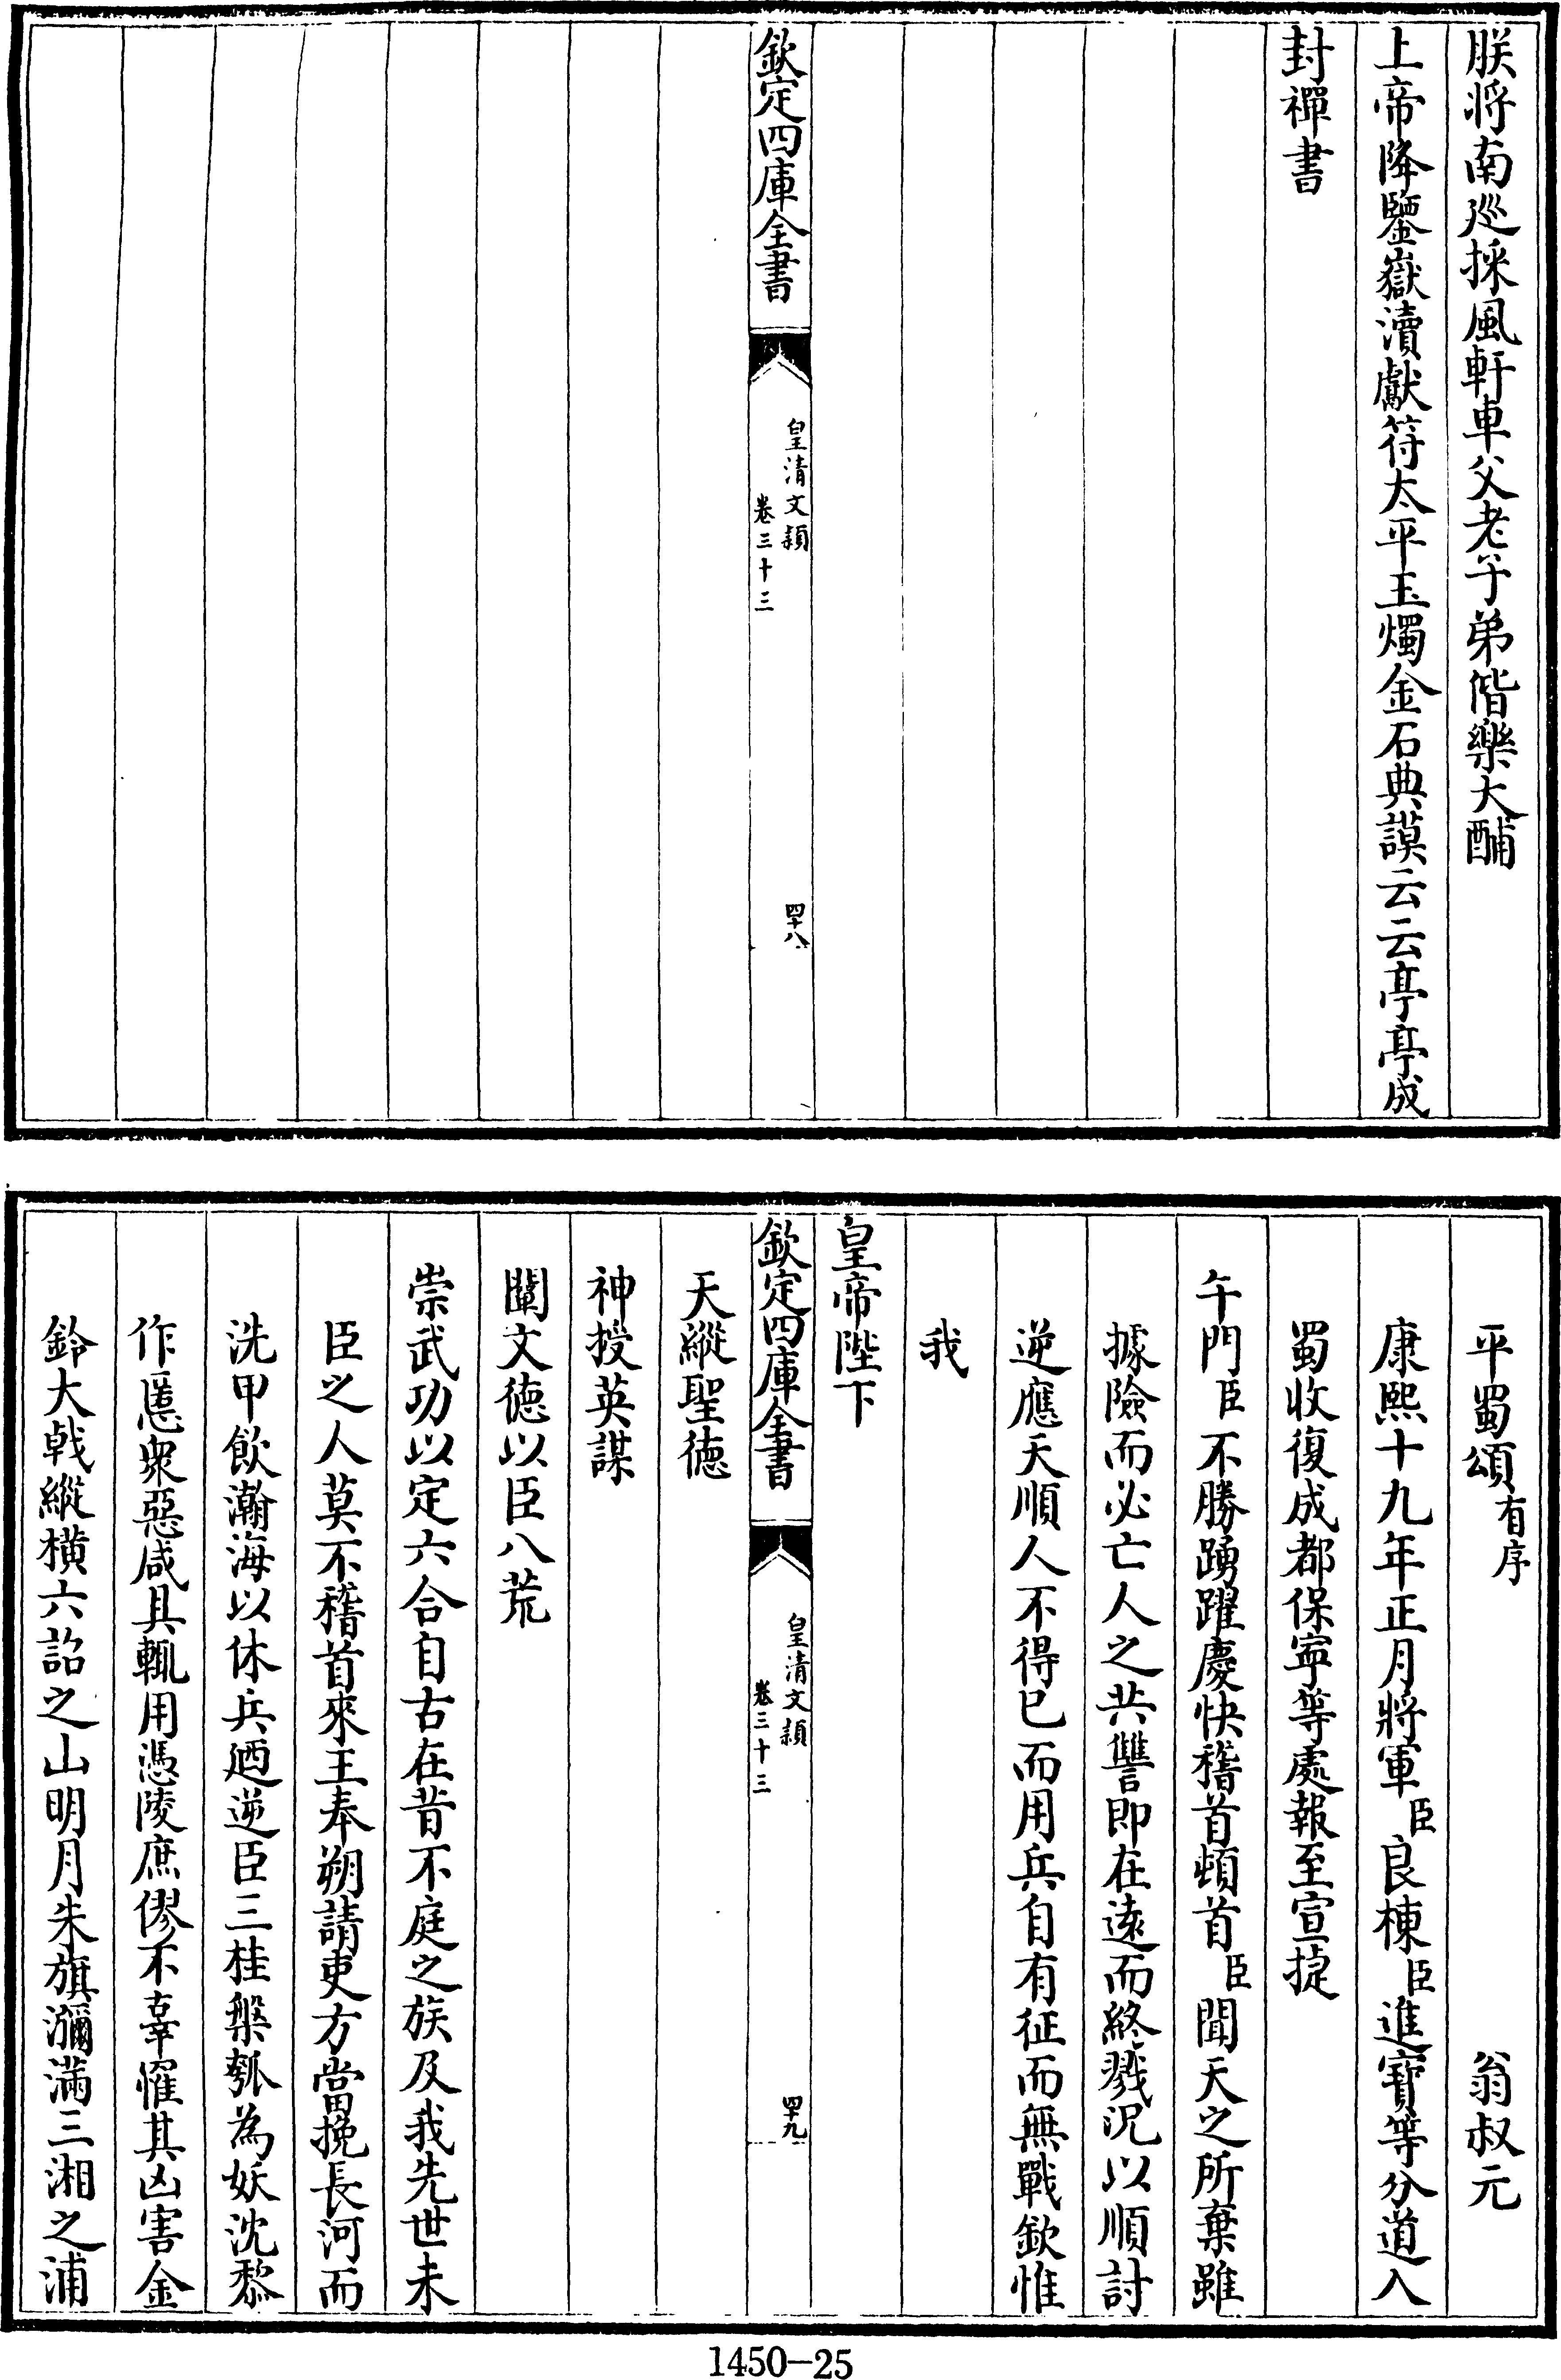 朕將南巡採風軒車父老子弟偕樂大酺
上帝降鑒嶽瀆獻符太平玉燭金石典謨云云亭亭成
封禪書
欽定四庫全書
皇清文頴
卷三十三
四十八
平蜀頌有序
翁叔元
康熙十九年正月將軍臣良棟臣進寶等分道入
蜀收復成都保寧等處報至宣捷
午門臣不勝踴躍慶快稽首頓首臣聞天之所棄雖
據險而必亡人之共讐即在遠而終戮況以順討
逆應天順人不得已而用兵自有征而無戰欽惟
我
皇帝陛下
欽定四庫全書
皇清文頴
卷三十三
四十九
天縱聖德
神授英謀
闡文德以臣八荒
崇武功以定六合自古在昔不庭之族及我先世未
臣之人莫不稽首來王奉朔請吏方當挽長河而
洗甲飲瀚海以休兵廼逆臣三桂槃瓠為妖沈黎
作慝衆惡咸具輒用憑陵庶僇不辜罹其凶害金
鈴大戟縱橫六詔之山明月朱旗瀰滿三湘之浦
1450-25